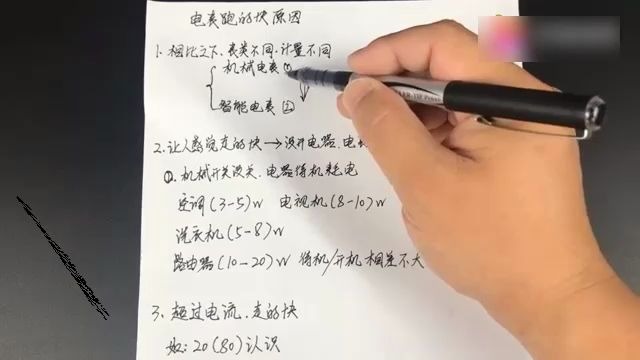 电表跑的快原因
1. 相比之下、表类不同、计量不同
机械电表①
智能电表②
2. 让人感觉走的快→没开电器、电
①. 机械开关没关、电器待机耗电
空调(3-5)w 电视机(8-10)w
洗衣机(5-8)w
路由器(10-20)w 待机/开机相差不大
3. 超过电流、走的快
如：20(80)认识